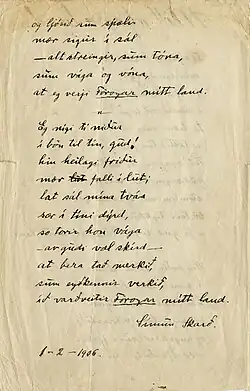 og sum spælir
mær sigur í sál
—alt streingir, sum tóna,
sum vága og vóna,
at eg verji Føroyar mítt land.
Eg nígi tí niður
í bøn til tín, gud!
hin heilagi friður
mær falli í lut;
lat sál mína tváa
sær í tíni dýrd,
so torir hon vága
—av gudi væl skírd—
at bera tað merkið,
sum eyðkennir verkið,
ið varðveitir Føroyar mítt land.
Símun Skarð.
1-2-1906.